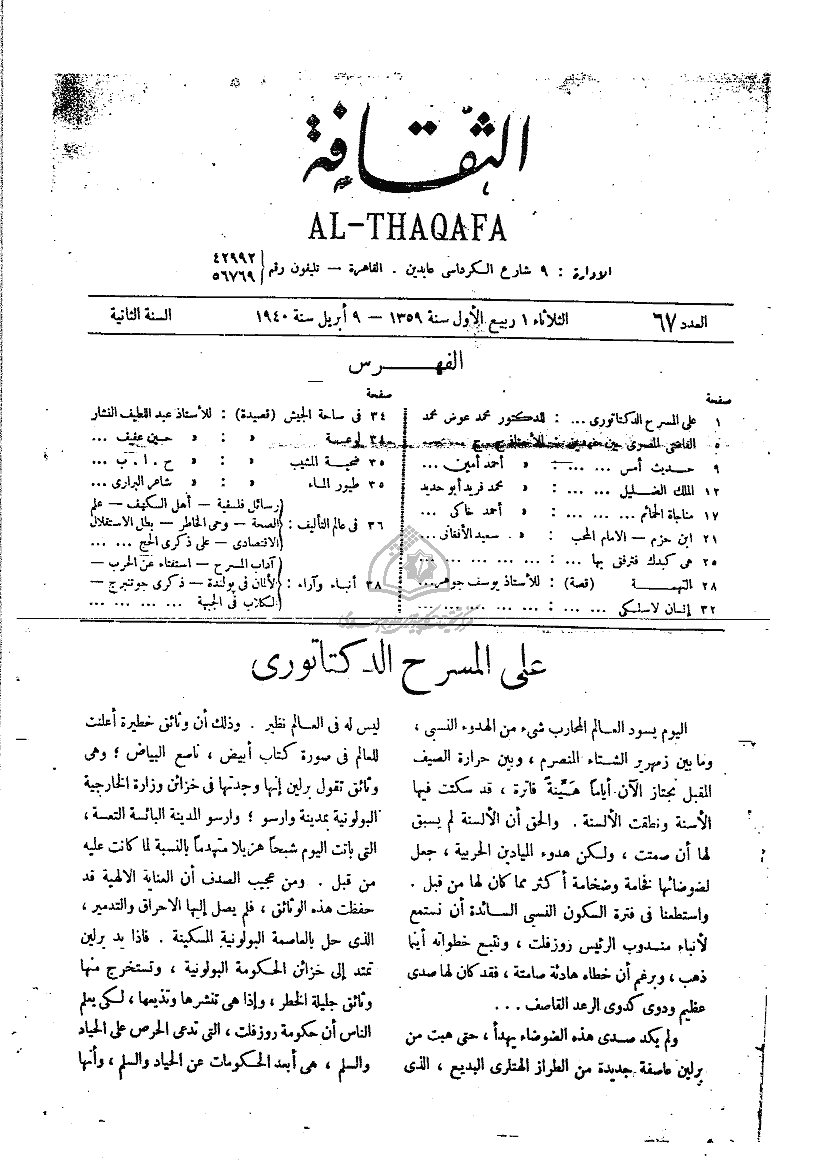 الثّقافة
AL-THAQAFA
الادارة : ٩ شارع الكرداسى عابدين . القاهرة — تليفون رقم { ٤٢٩٩٢
٥٦٧٦٩
العدد ٦٧
الثلاثاء ١ ربيع الأول سنة ١٣٥٩ — ٩ أبريل سنة ١٩٤٠
السنة الثانية
الفهـــرس
صفحة
١ على المسرح الدكتاتورى ... : للدكتور محمد عوض محمد
٥ القاضى المصرى بين
٩ حديث أمس ... ... ... : » أحمد أمين ...
١٢ الملك الضليل ... ... : » محمد فريد أبو حديد
١٧ مناجاة الحمائم ... ... : » أحمد خاكى ...
٢١ ابن حزم — الامام المحب : » . سعيد الأفغانى ...
٢٥ هى كبدك فترفقى بها ... : ... ... ... ...
٢٨ التهمــة (قصة) : للأستاذ يوسف جوهر...
٣٢ إنسان لاسلكى ... ... : ... ... ... ...
صفحة
٣٤ فى ساحة الجيش (قصيدة) : للأستاذ عبد اللطيف النشار
٣٤ لوعـــة » : » حسين عفيف ...
٣٥ ضحية المشيب » : » ح . ا . ب ...
٣٥ طيور الماء » : » شاعر البرارى ...
٣٦ فى عالم التأليف : { رسائل فلسفية — أهل الكهف — علم
الصحة — وحى الخاطر — بطل الاستقلال
الاقتصادى — على ذكرى الحج ... ...
٣٨ أنباء وآراء : { آداب المسرح — استفتاء عن الحرب —
الألمان فى بولندة — ذكرى جوتنبرج —
الكلاب فى الجبهة ... ... ... ...
على المسرح الدكتاتورى
اليوم يسود العالم المحارب شىء من الهدوء النسبى ،
وما بين زمهرير الشتاء المنصرم ، وبين حرارة الصيف
المقبل نجتاز الآن أياماً هيّنة فاترة ، قد سكتت فيها
الأسنة ونطقت الألسنة . والحق أن الألسنة لم يسبق
لها أن صمتت ، ولكن هدوء الميادين الحربية ، جعل
لضوضائها نخامة وضخامة أكثر مما كان لها من قبل .
واستطعنا فى فترة السكون النسبى السائدة أن نستمع
لأنباء مندوب الرئيس روزفلت ، ونتبع خطواته أينما
ذهب ، وبرغم أن خطاه هادئة صامتة ، فقد كان لها صدى
عظيم ودوى كدوى الرعد القاصف ...
ولم يكد صدى هذه الضوضاء يهدأ ، حتى هبت من
برلين عاصفة جديدة من الطراز الهتلرى البديع ، الذى
ليس له فى العالم نظير . وذلك أن وثائق خطيرة أعلنت
للعالم فى صورة كتاب أبيض ، ناصع البياض ؛ وهى
وثائق تقول برلين إنها وجدتها فى خزائن وزارة الخارجية
البولونية بمدينة وارسو ؛ وارسو المدينة البائسة التعسة ،
التى باتت اليوم شبحاً هزيلا متهدماً بالنسبة لما كانت عليه
من قبل . ومن عجيب الصدف أن العناية الالهية قد
حفظت هذه الوثائق ، فلم يصل إليها الاحراق والتدمير ،
الذى حل بالعاصمة البولونية المسكينة . فاذا يد برلين
تمتد إلى خزائن الحكومة البولونية ، وتستخرج منها
وثائق جليلة الخطر ، وإذا هى تنشرها وتذيعها ، لكى يعلم
الناس أن حكومة روزفلت ، التى تدعى الحرص على الحياد
والسلم ، هى أبعد الحكومات عن الحياد والسلم ، وأنها